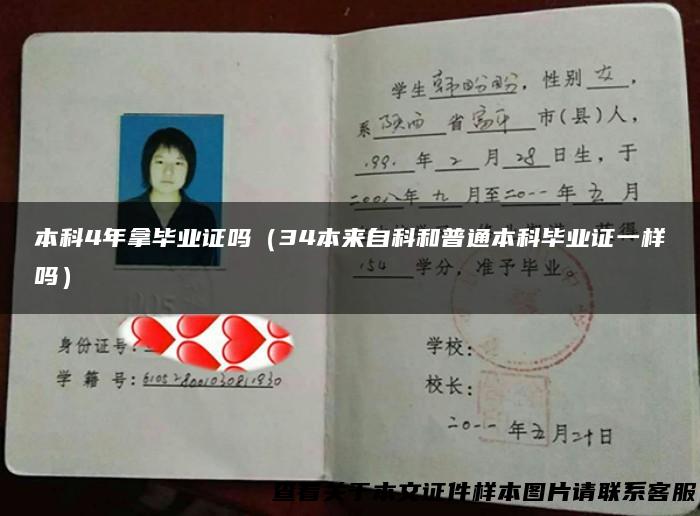 学生韩盼盼，性别女，
系陕西省富平市(县)人，
1991年2月28日生，于
二00八年九月至二0一一年五月
本科4年拿毕业证吗（34本来自科和普通本科毕业证一样
吗）
154学分，准予毕业。
身份证号：
学籍号：
学校：
校长：
二0一一年五月二十日
查看关于本文证件样本图片请联系客服